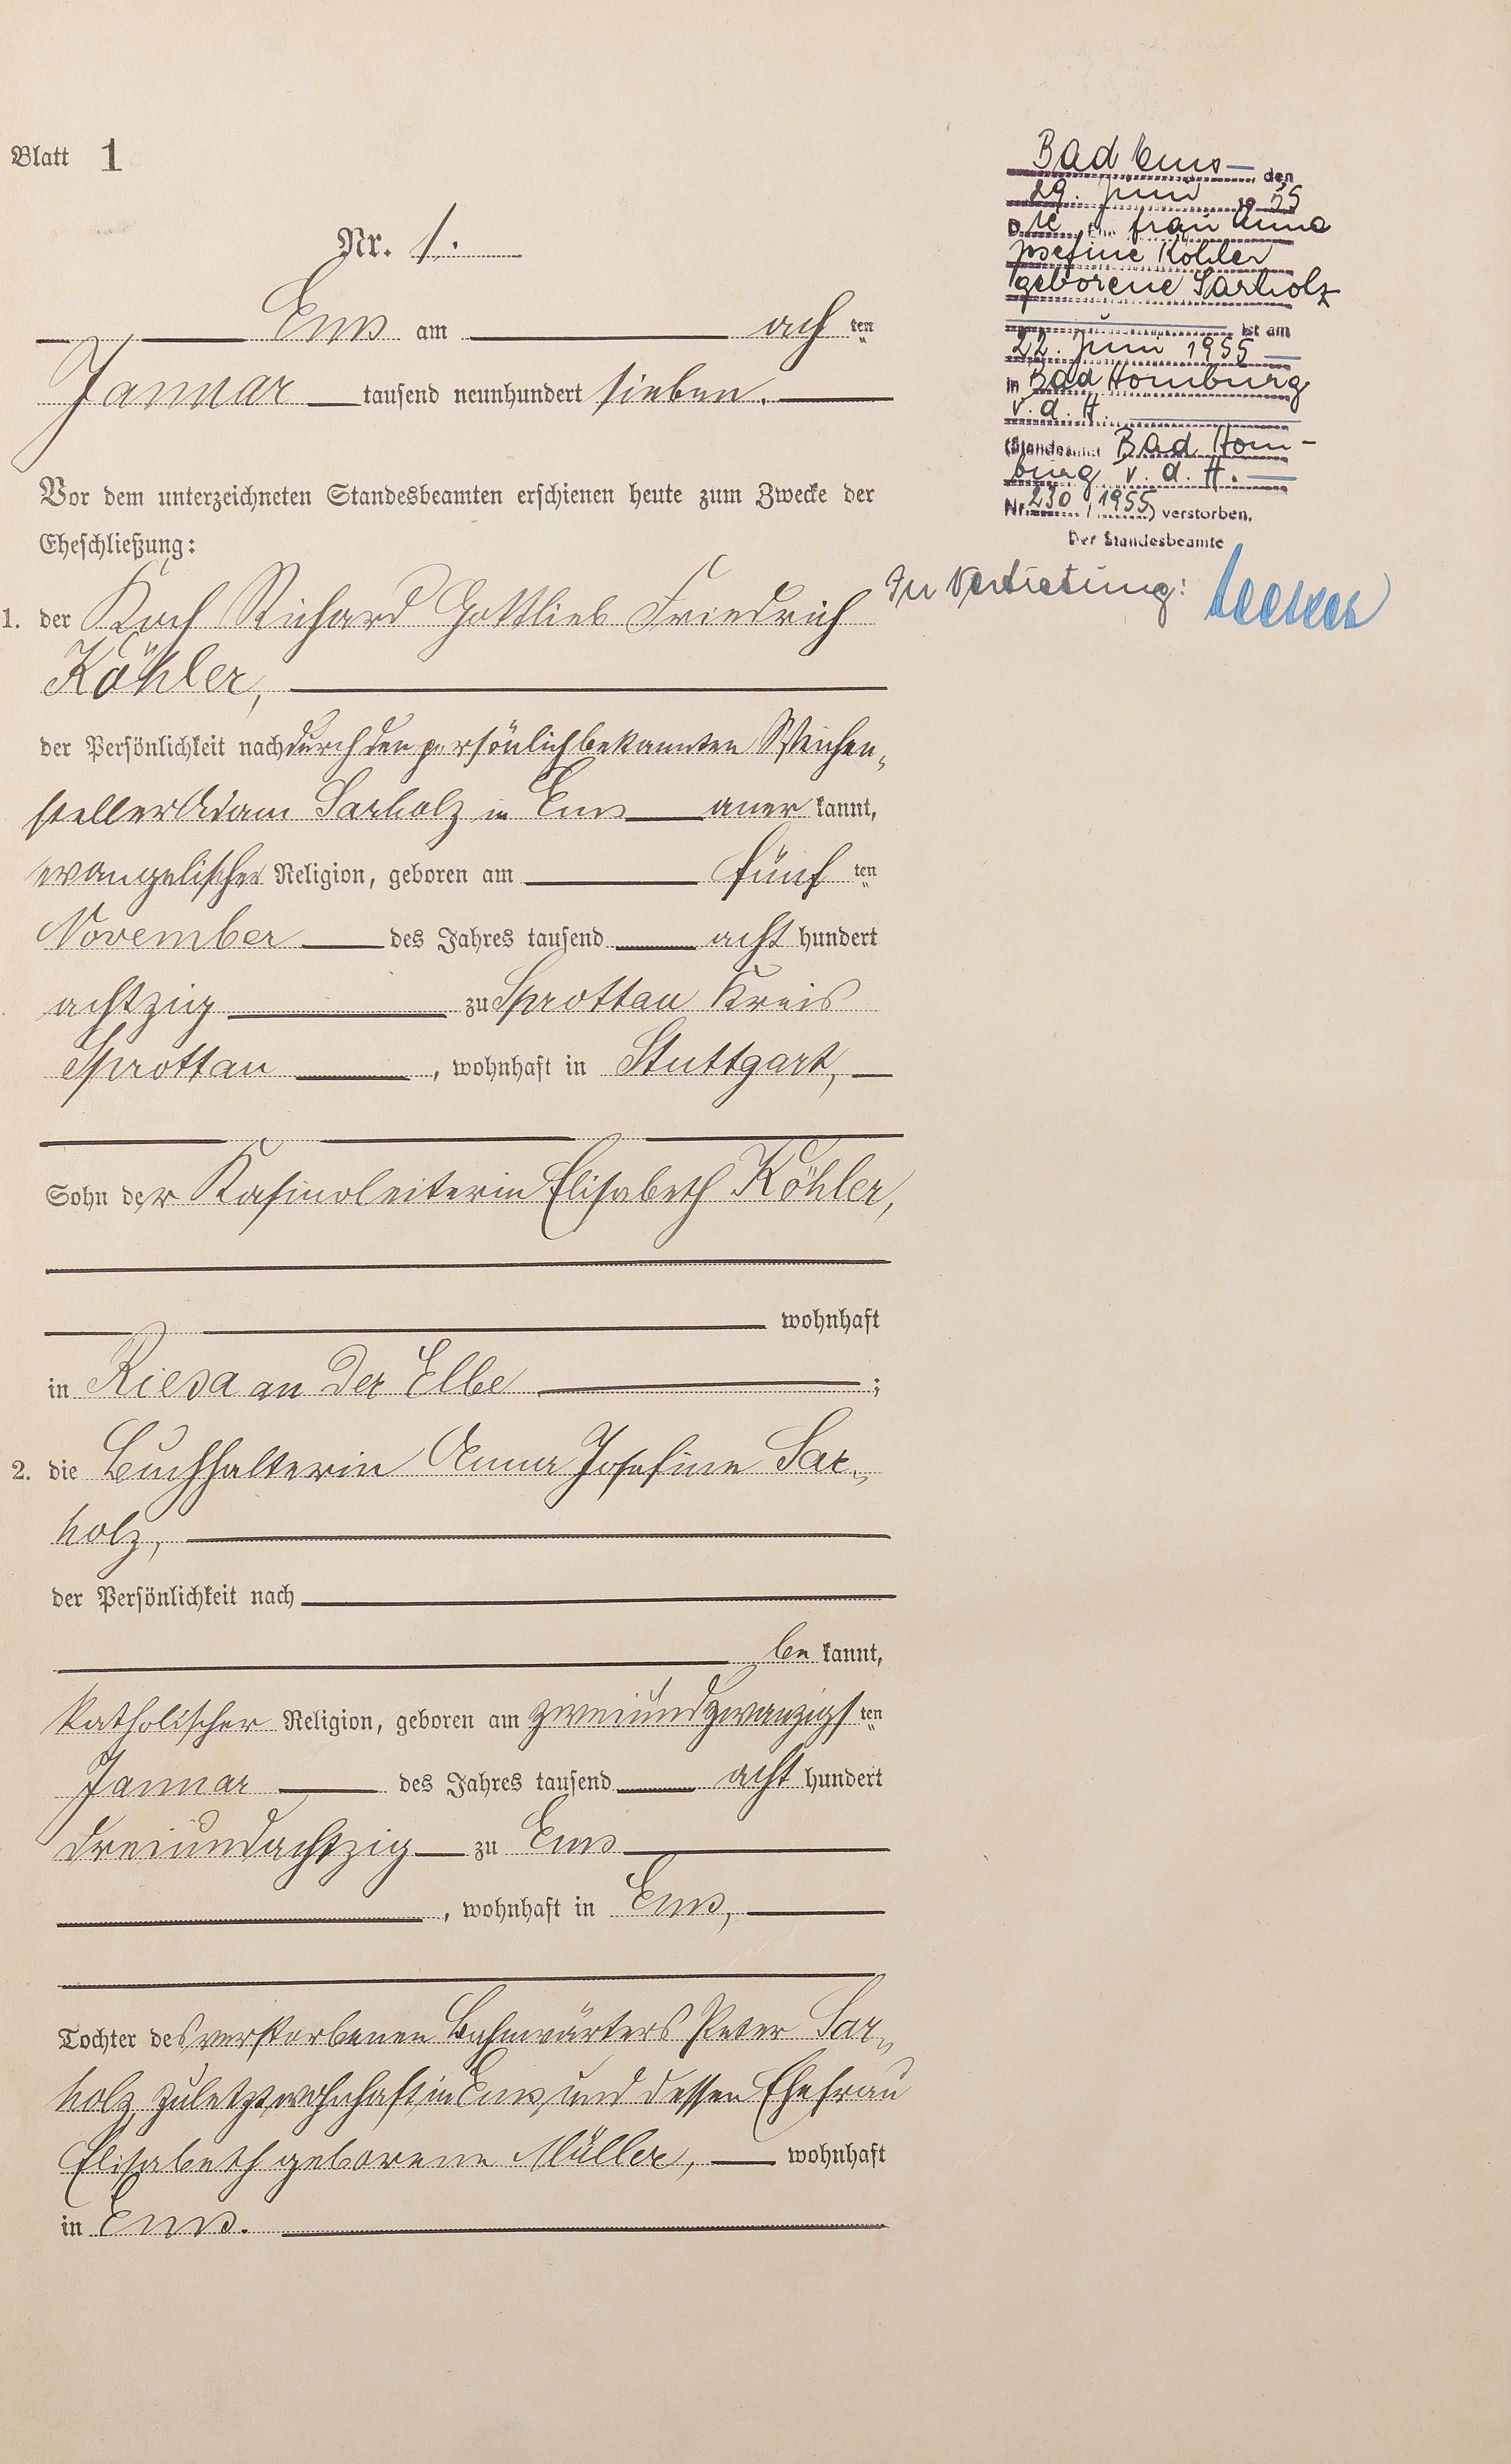 Blatt 1
Nr. 1.
Ems am ach ten
Januar tausend neunhundert sieben.
Vor dem unterzeichneten Standesbeamten erschienen heute zum Zwecke der
Eheschließung:
1. der Koch Richard Gottlieb Friedrich
Köhler,
der Persönlichkeit nach durch den persönlich bekannten Weichen„
steller Adam Sarholz in Ems aner kannt,
evangelischer Religion, geboren am fünf ten
November des Jahres tausend acht hundert
achtzig zu Sprottau Kreis
Sprottau, wohnhaft in Stuttgart,
Sohn der Kasinoleiterin Elisabeth Köhler,
wohnhaft
in Riesa an der Elbe ;
2. die Buchhalterin Anna Josefine Sar„
holz,
der Persönlichkeit nach
be kannt,
katholischer Religion, geboren am zweiundzwanzigs ten
Januar des Jahres tausend acht hundert
dreiundachtzig zu Ems
, wohnhaft in Ems,
Tochter des verstorbenen Bahnwärters Peter Sar„
holz, zuletzt wohnhaft in Ems, und dessen Ehefrau
Elisabeth geborene Müller, wohnhaft
in Ems.
Bad Ems, den
29. Juni 19 55
Die Ehefrau Anna
Josefine Köhler
geborene Sarholz
ist am
22. Juni 1955
in Bad Homburg
v. d. H.
(Standesamt Bad Hom-
burg v. d. H.
Nr. 230 / 1955) verstorben.
Der Standesbeamte
In Vertretung: